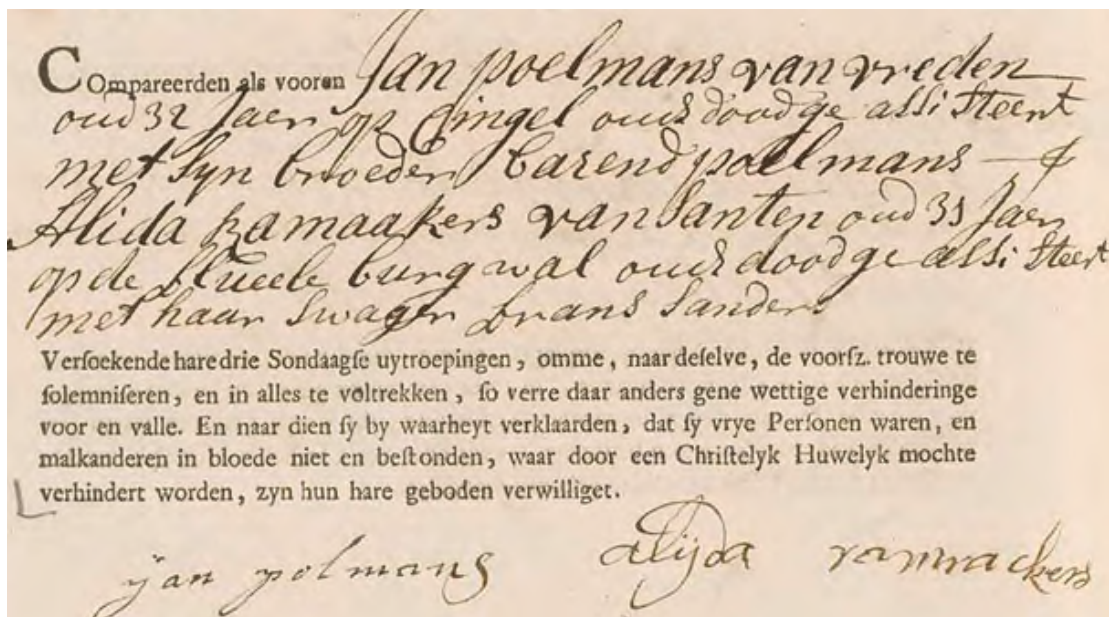 COmpareerden als vooren Jan poelmans van vreden
oud 32 Jaer op Cingel ouds dood ge assisteert
met syn broeder barend poelmans &
Alida ramaakers van Santen oud 33 Jaer
op de flueele burgwal ouds dood ge assisteert
met haar Swager frans Sanders
Verſoekende hare drie Sondaagſe uytroepingen, omme, naar deſelve, de voorſz. trouwe te
ſolemniſeren, en in alles te voltrekken, ſo verre daar anders gene wettige verhinderinge
voor en valle. En naar dien ſy by waarheyt verklaarden, dat ſy vrye Perſonen waren, en
malkanderen in bloede niet en beſtonden, waar door een Chriſtelyk Huwelyk mochte
verhindert worden, zyn hun hare geboden verwilliget.
jan polmans alijda ramackers